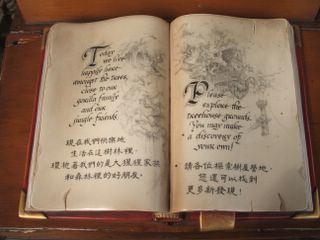 Today
we live
happily here
amongst the trees,
close to our
gorilla family
and our
jungle friends
現在我們快樂地
生活在這樹林裡.
環繞著我們的是大猩猩家族
和森林裡的好朋友。
Please
explore the
treehouse grounds.
You may make
a discovery of
your own!
請各位探索樹屋營地.
您還可以找到
更多新發現！